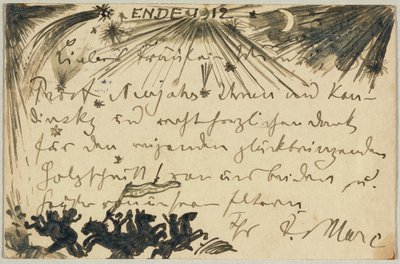 ENDE 1912
Liebes Fräulein
Prosit Neujahr Ihnen und Kan-
dinsky und recht herzlichen Dank
für den reizenden glückbringenden
Holzschnitt! von uns beiden u.
unseren Eltern
Ihr F. Marc